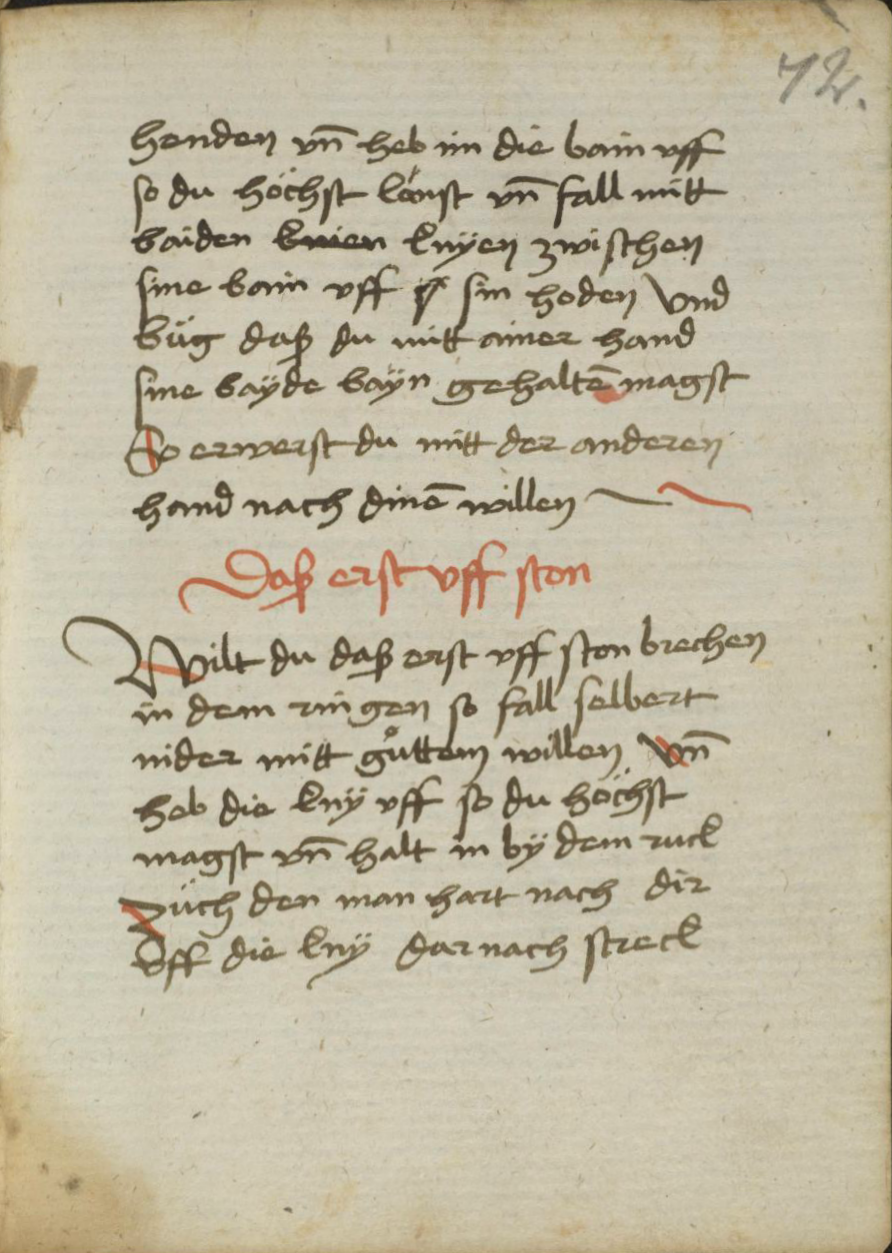 72.
henden vn̄ heb im die bain vff
so du höchst kanst vn̄ fall mitt
baiden knyen zwischen
sine bain vff sin hoden Vnd
büg daß du mitt ainer hand
sine bayde bayn gehaltē magst
So erwerst du mitt der anderen
hand nach dinē willen
Daß erst vff ston
Wilt du daß erst vff ston brechen
in dem ringen so fall selbert
nider mitt gůttem willen Vn̄
heb die knÿ vff so du höchst
magst vn̄ halt in bÿ dem ruck
Züch den man hart nach dir
vff die knÿ dar nach streck